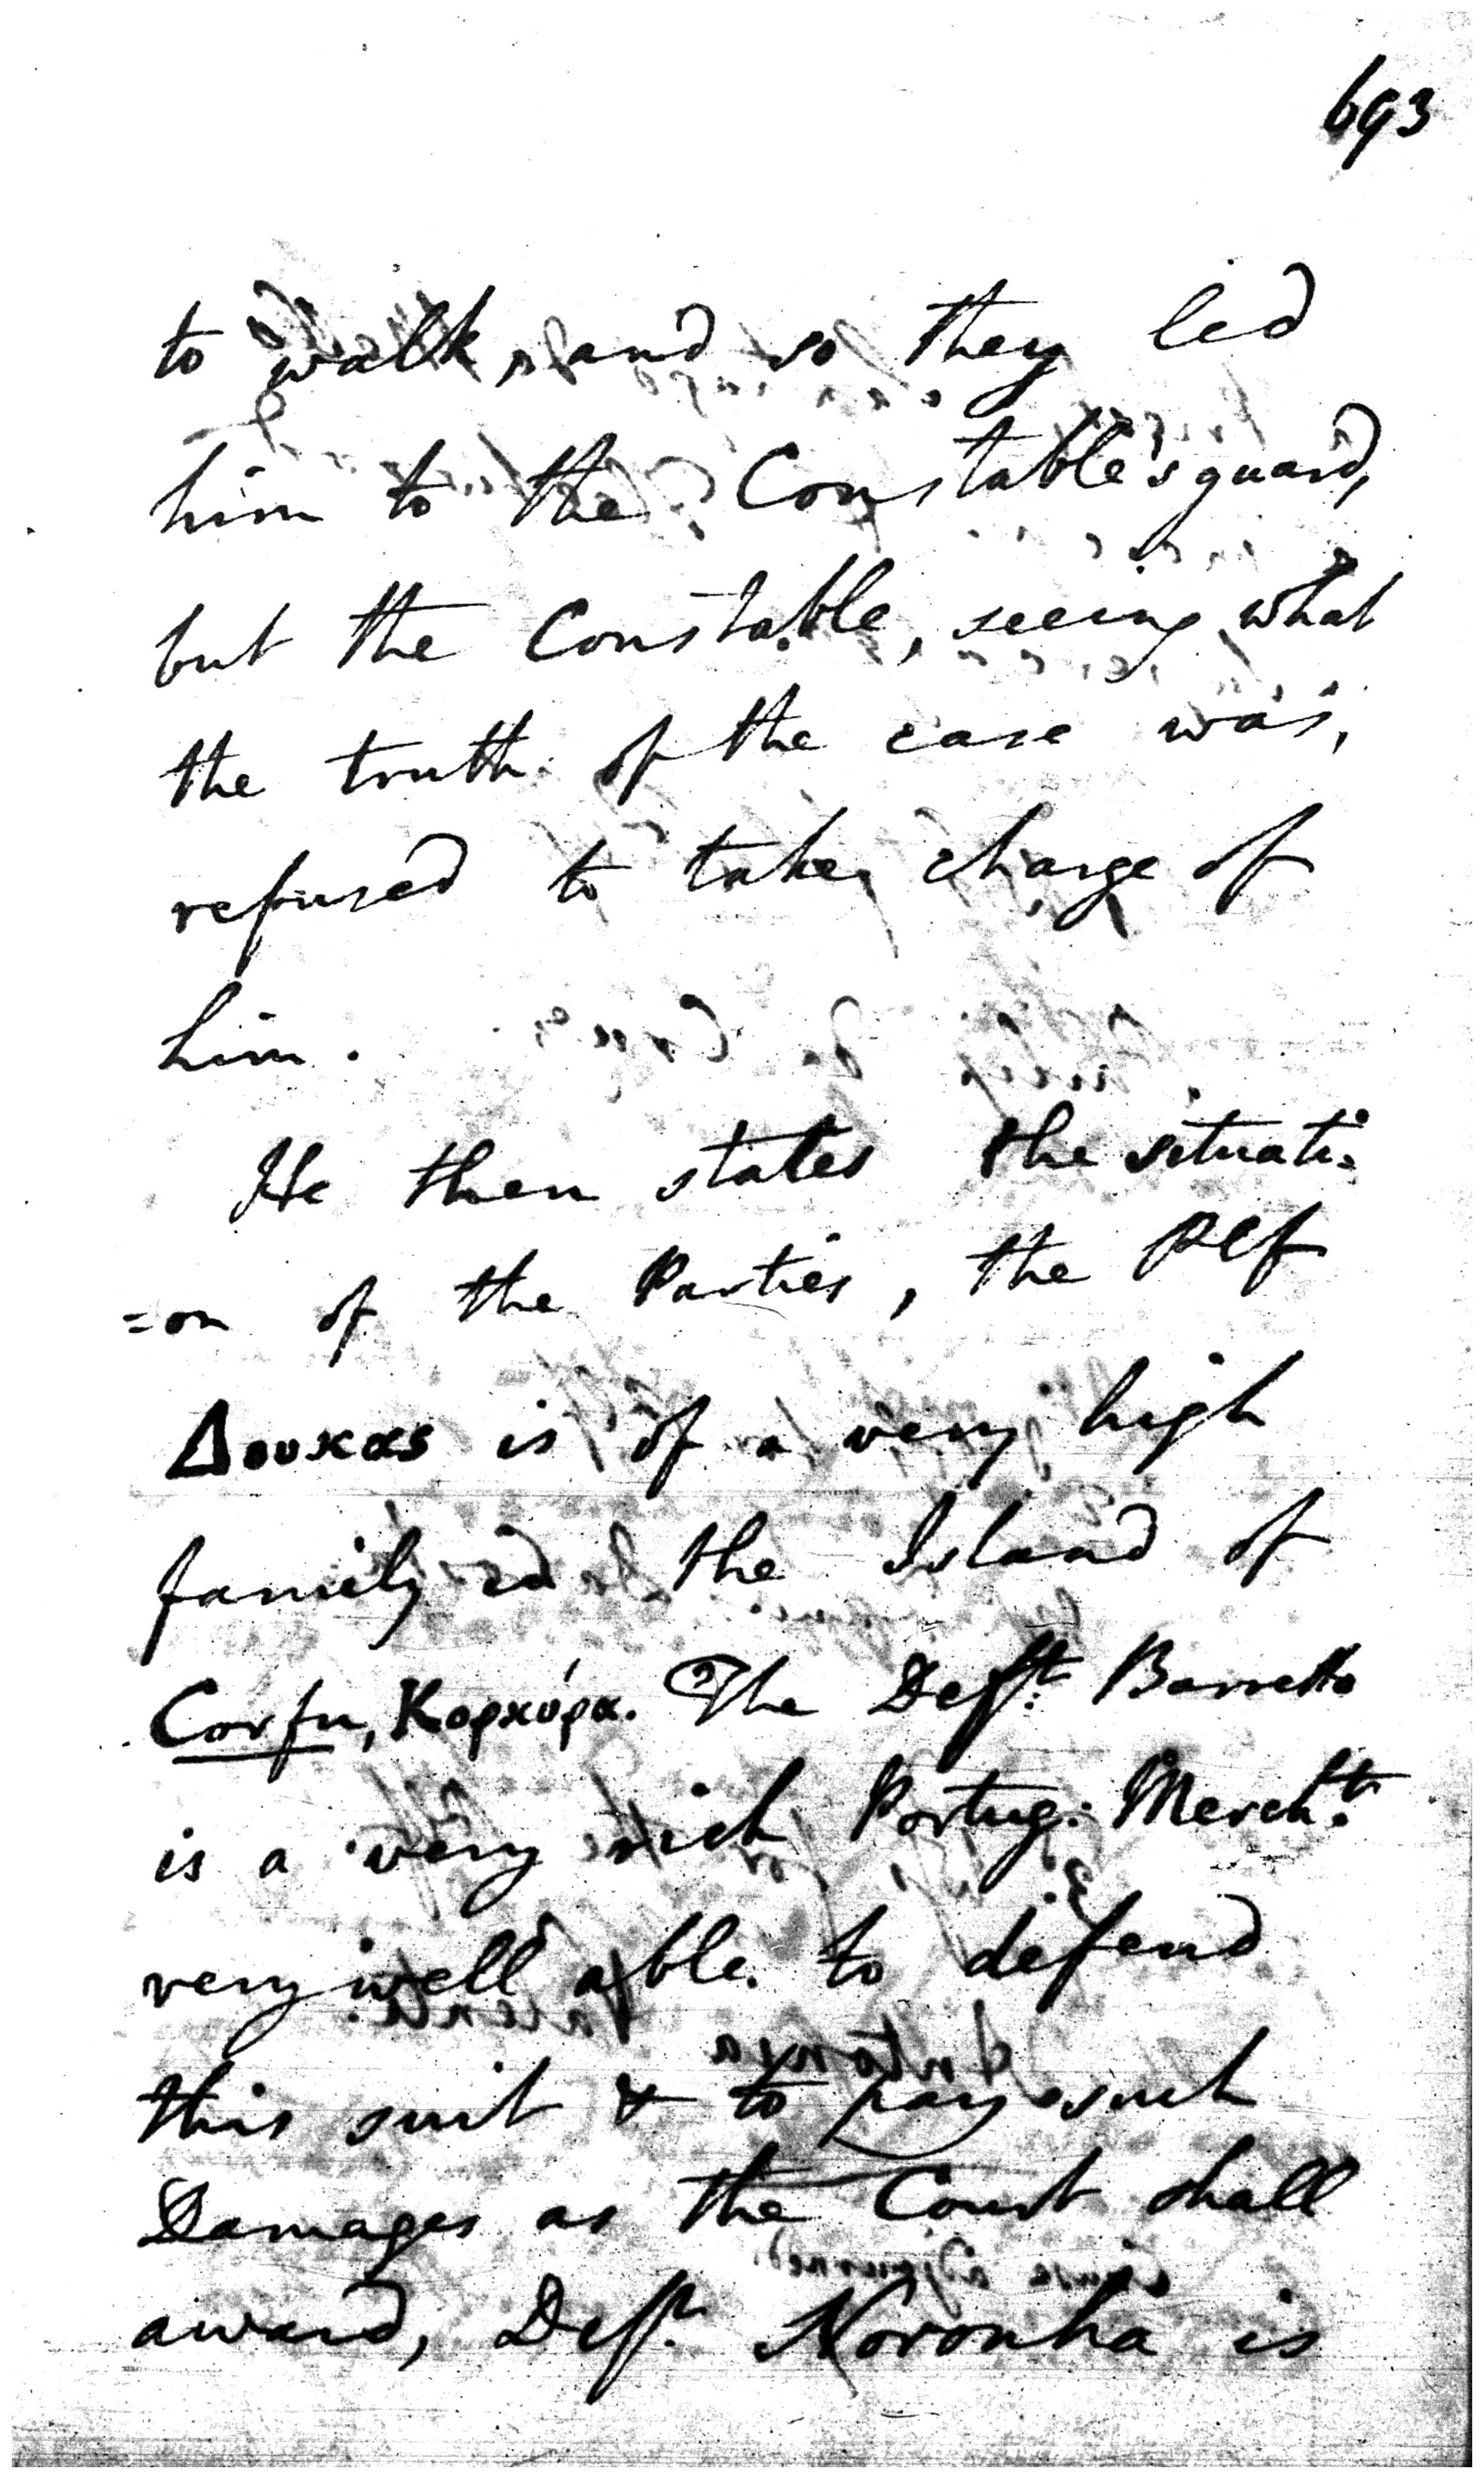 693
to walk, and so they led
him to the Constable's guard,
but the Constable, seeing what
the truth of the case was,
refused to take charge of
him.
He then states the situati=
=on of the Parties, the Plf
Δουκας is of a very high
family in the Island of
Corfu, Κορκύρα. The Deft. Barretto
is a very rich Portug: Mercht.
very well able to defend
this suit & to pay such
Damages as the Court shall
award, Deft. Noronha is